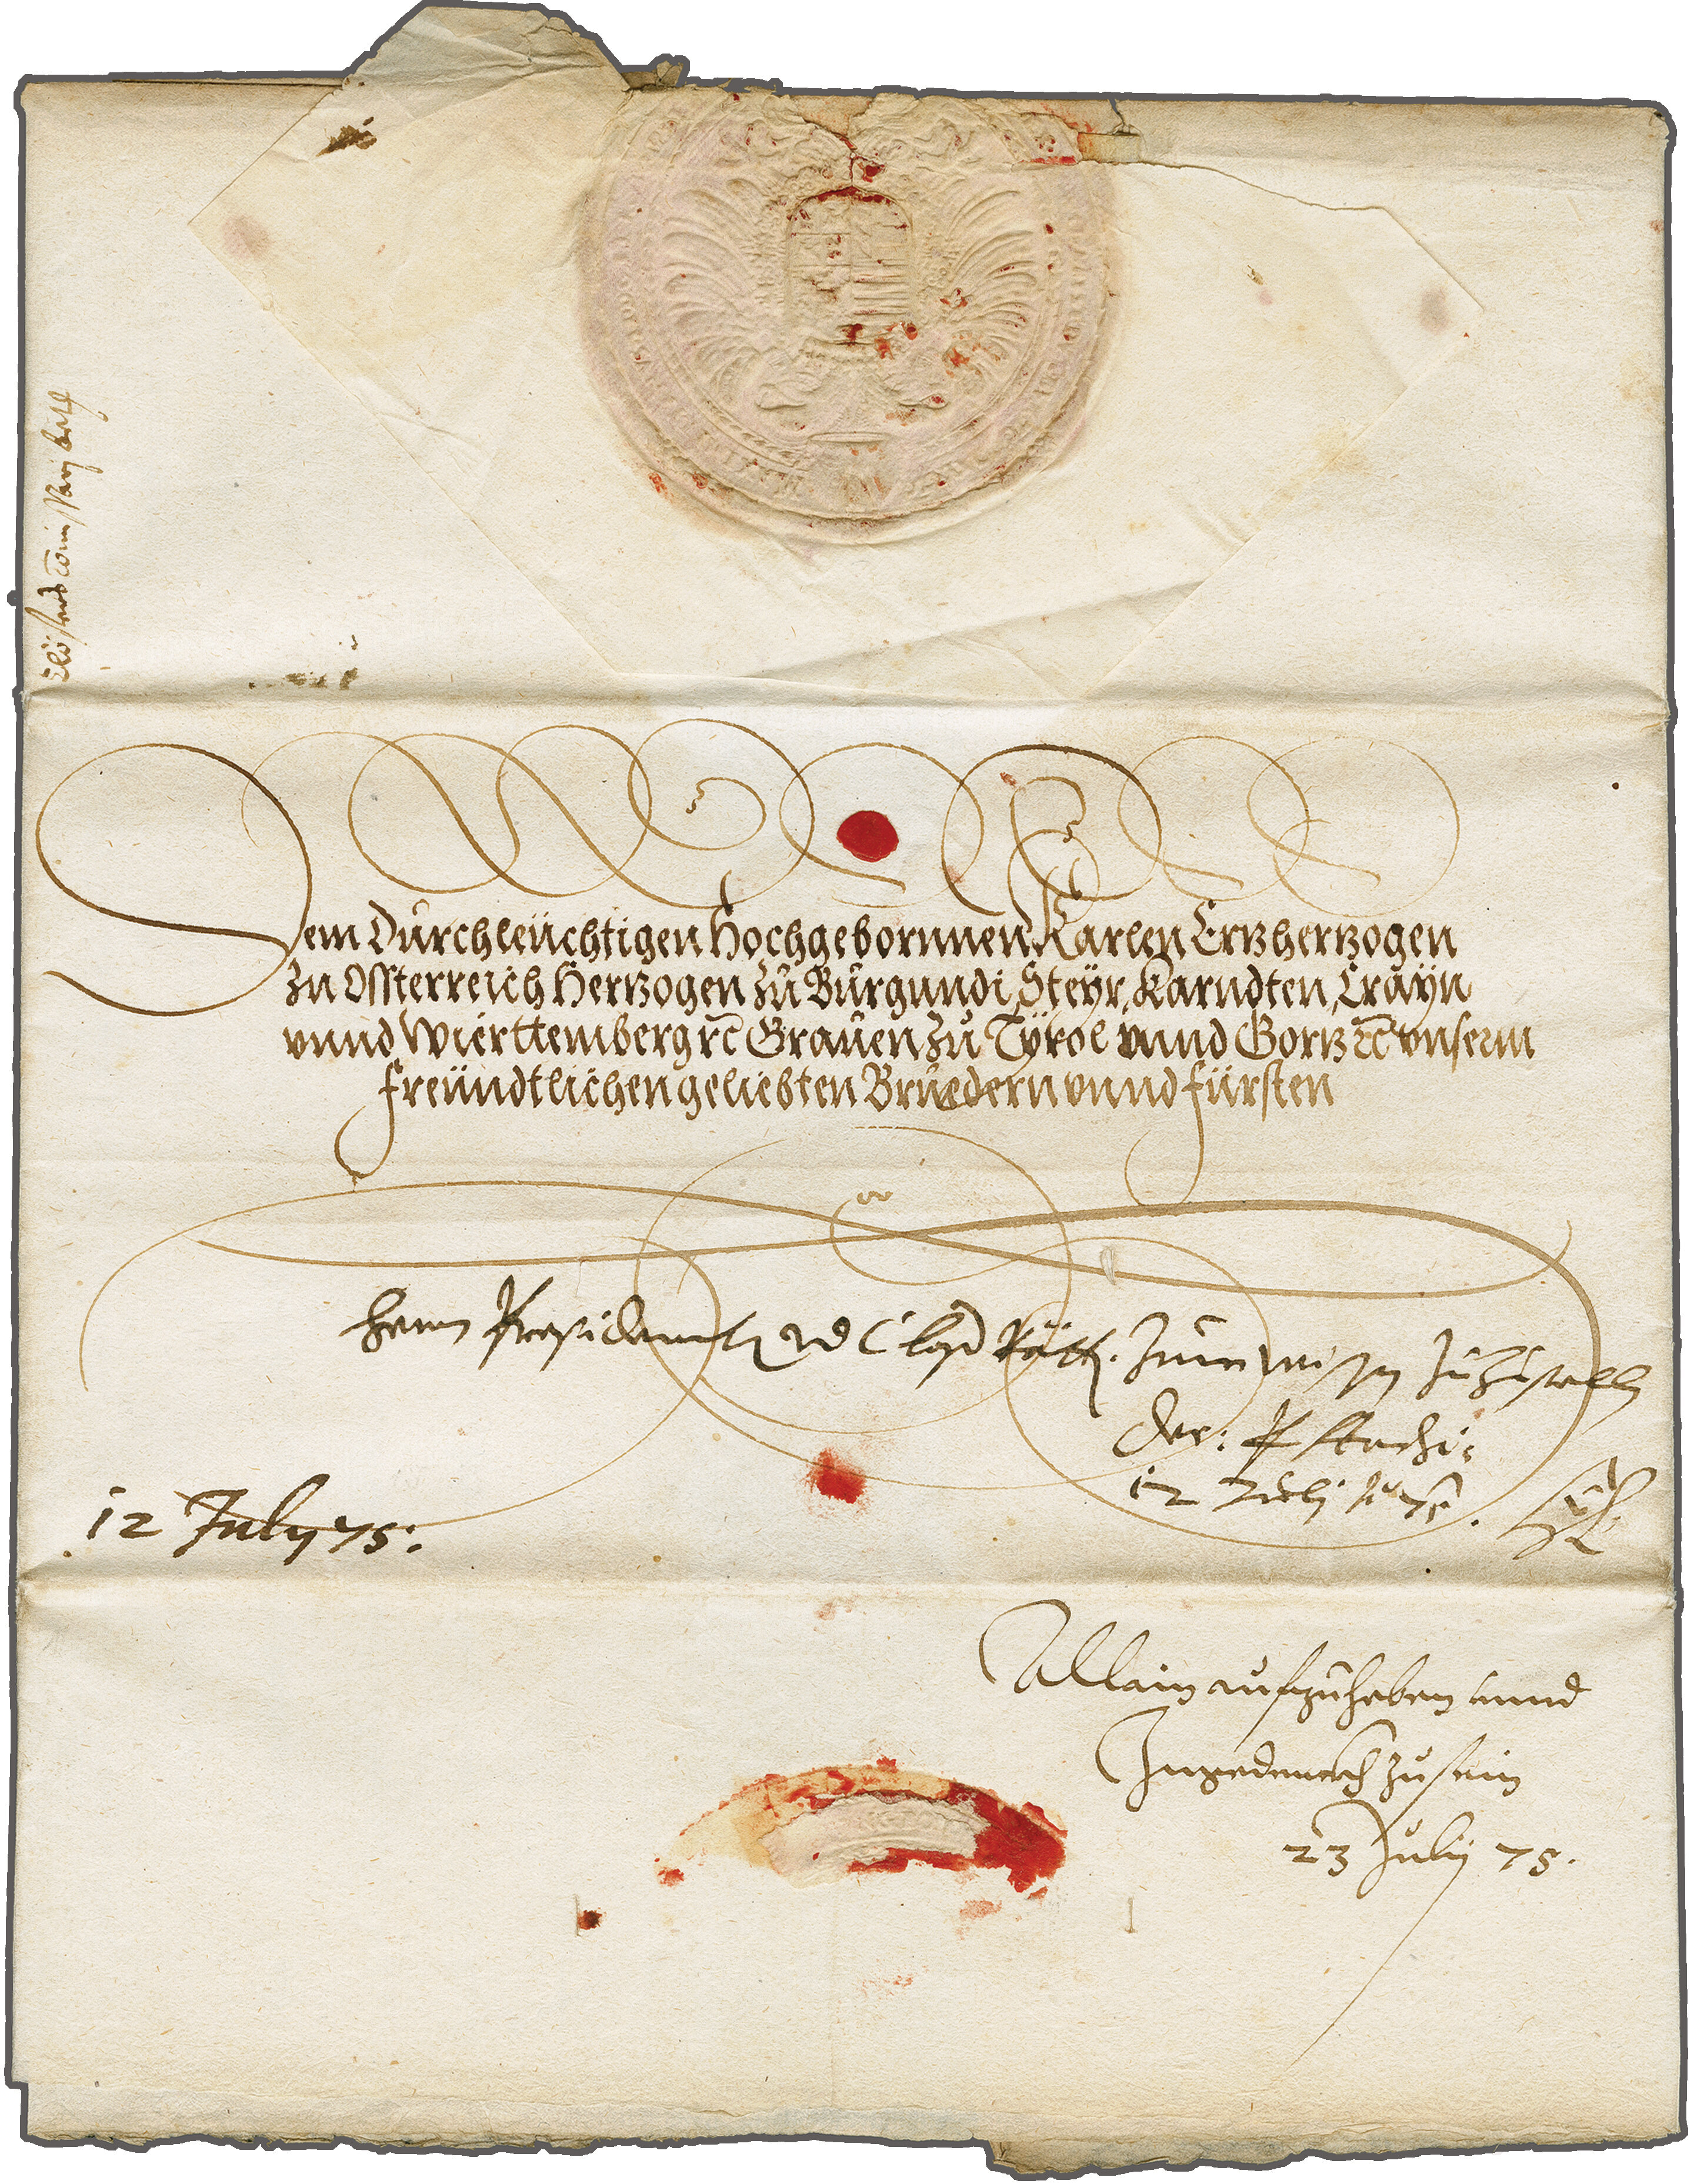 Dem Durchleüchtigen Hochgebornnen Karlen Ertzhertzogen
zu Ossterreich Hertzogen zu Burgundi, Steyr, Karndten, Crayn
vnnd Wierttemberg rc Grauen zu Tyrol vnnd Gortz rc vnserm
freündtlichen geliebten Bruedern vnnd fürsten
Herrn Presidenten Räth. zu
12 July 75.
12 July 75:
Allain aufzuheben vnnd
Ingedenckh zu sein
23 July 75.